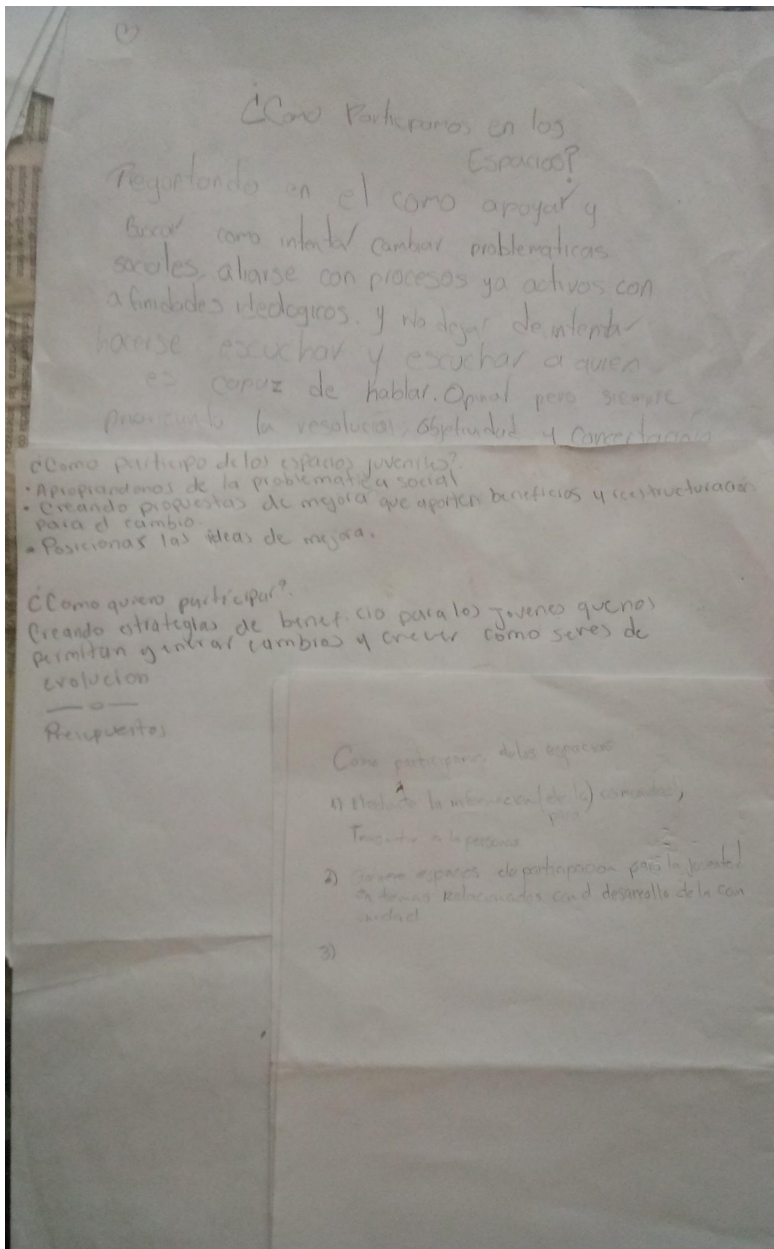 ¿Como Participamos en los
Espacios?
en el como apoyar y
Buscar como intentar cambiar problematicas
sociales, aliarse con procesos ya activos con
afinidades ideologicos. y no dejar de intentar
hacerse escuchar y escuchar a quien
es capaz de hablar. Opinar pero siempre
la resolucion, Objetividad y
¿Como participo de los espacios juveniles?
• Apropiandonos de la problematica social
• Creando propuestas de mejora que aporten beneficios y reestructuracion
para el cambio
• Posicionar las ideas de mejora.
¿Como quiero participar?
Creando estrategias de beneficio para los jovenes que nos
permitan generar cambios y crecer como seres de
evolucion
—o—
Presupuestos
Como participamos de los espacios
1) la informacion (de la) comunidad,
para
a la personas
2) espacios de participacion para la juventud
en temas Relacionados con el desarrollo de la com
unidad
3)